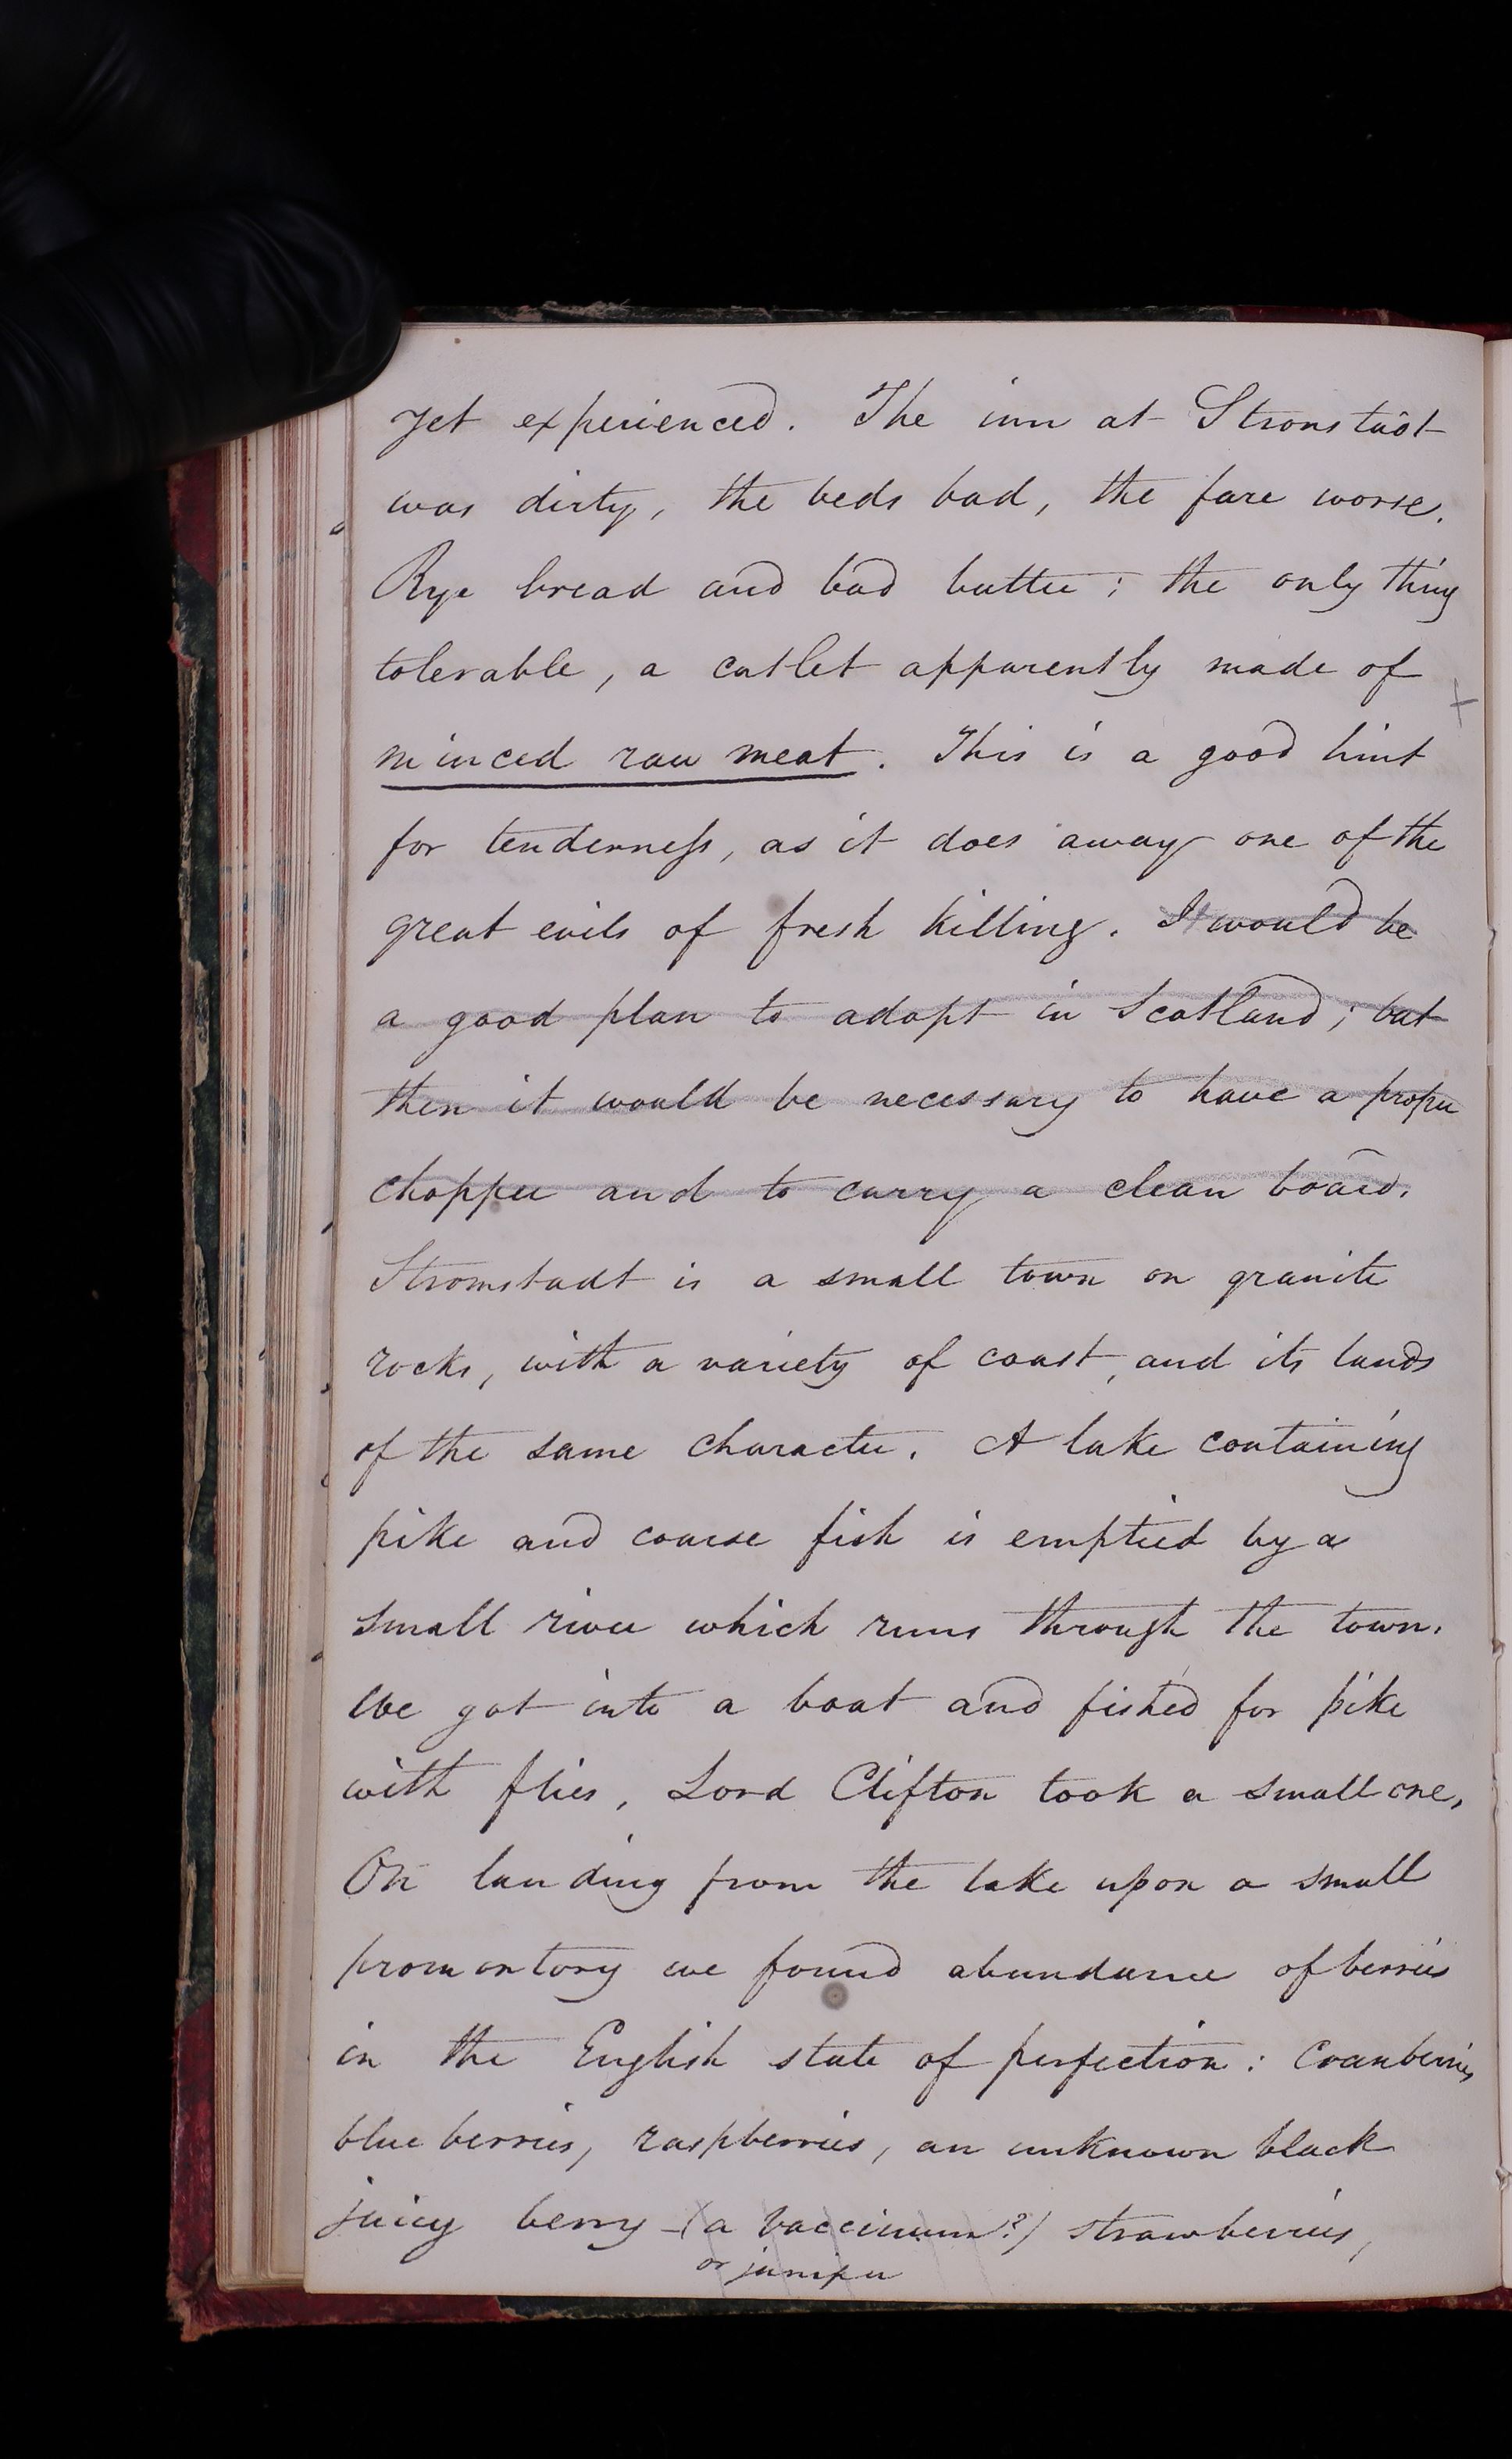 yet experienced. The inn at Stromstadt
was dirty, the beds bad, the fare worse.
Rye bread and bad butter; the only thing
tolerable, a cutlet apparently made of
minced raw meat. This is a good hint
for tenderness, as it does away one of the
great evils of fresh killing. It would be
a good plan to adopt in Scotland; but
then it would be necessary to have a proper
chopper and to carry a clean board.
Stromstadt is a small town on granite
rocks, with a variety of coast, and its lands
of the same character. A lake containing
pike and coarse fish is emptied by a
small river which runs through the town.
We got into a boat and fished for pike
with flies, Lord Clifton took a small one,
On landing from the lake upon a small
promontory we found abundance of berries
in the English state of perfection: Cranberries,
blue berries, raspberries, an unknown black
juicy berry (a vaccinum?) strawberries,
or juniper